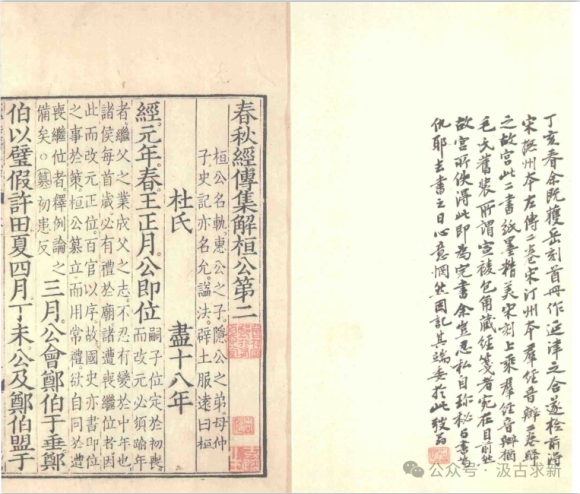 丁亥春余既獲岳刻首冊作延津之合遂檢前得
宋撫州本左傳二卷宋汀州本羣經音辨二卷歸
之故宮此二書紙墨精美宋刻上乘羣經音辨猶
毛氏舊裝所謂宣綾包角藏經箋者宛在目前然
故宮所佚得此即為完書余豈忍私自珍秘與書為
仇耶去書之日心意惘然因記其端委於此弢翁
春秋經傳集解桓公第二
桓公名軌惠公之子隱公之弟母仲
子史記亦名允謚法辟土服遠曰桓
杜氏 盡十八年
經元年春王正月公即位
嗣子位定於初喪
而改元必須踰年
者繼父之業成父之志不忍有變於中年也
諸侯每首歲必有禮於廟諸遭喪繼位者因
此而改元正位百官以序故國史亦書即位
之事於策桓公篡立而用常禮欲自同於遭
喪繼位者釋例論之
備矣○篡初患反
三月公會鄭伯于垂鄭
伯以璧假許田夏四月丁未公及鄭伯盟于
公众号·汲古求新